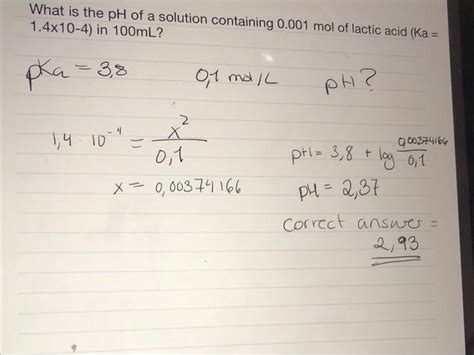 What is the pH of a solution containing 0.001 mol of lactic acid (Ka =
1.4x10-4) in 100mL?
pKa = 3,8 0,1 mol/L pH?
1,4 · 10⁻⁴ = x² / 0,1
x = 0,00374166
pH = 3,8 + log 0,00374166 / 0,1
pH = 2,37
correct answer =
2,93